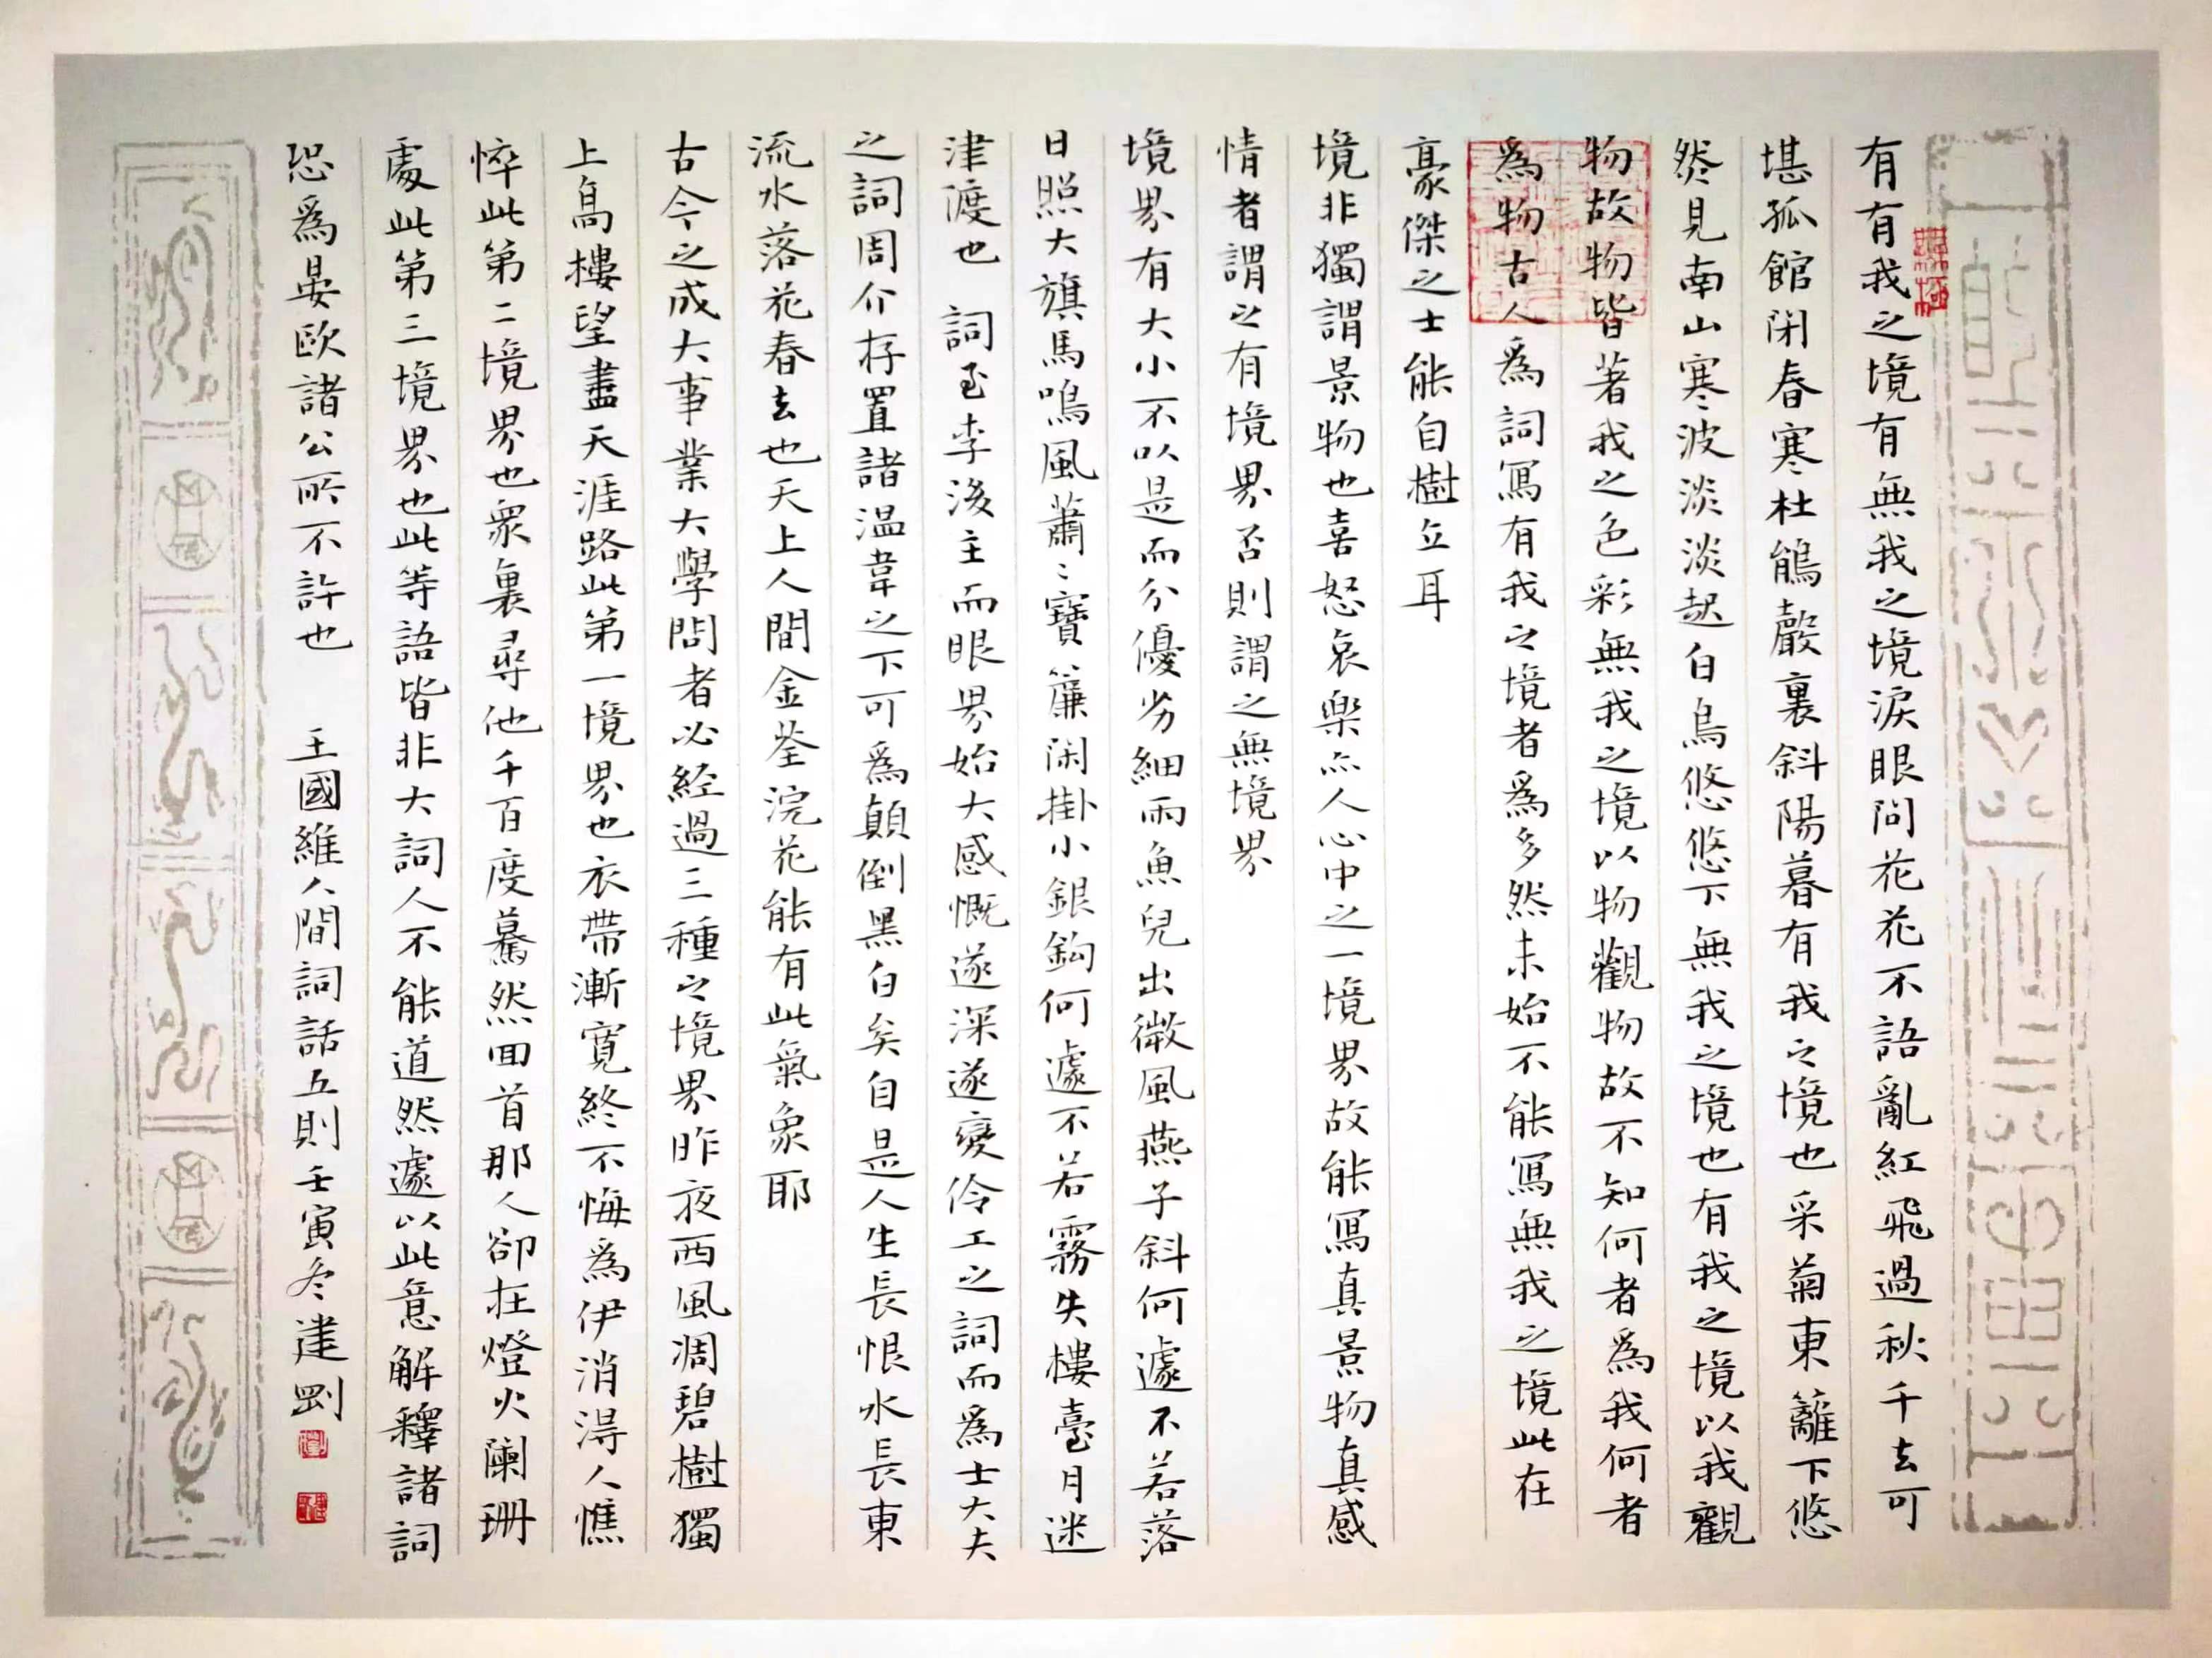 有有我之境有無我之境淚眼問花花不語亂紅飛過秋千去可
堪孤館閉春寒杜鵑聲裏斜陽暮有我之境也采菊東籬下悠
然見南山寒波淡淡起白鳥悠悠下無我之境也有我之境以我觀
物故物皆著我之色彩無我之境以物觀物故不知何者為我何者
為物古人為詞寫有我之境者為多然未始不能寫無我之境此在
豪傑之士能自樹立耳
境非獨謂景物也喜怒哀樂亦人心中之一境界故能寫真景物真感
情者謂之有境界否則謂之無境界
境界有大小不以是而分優劣細雨魚兒出微風燕子斜何遽不若落
日照大旗馬鳴風蕭〻寶簾閑掛小銀鉤何遽不若霧失樓臺月迷
津渡也 詞至李後主而眼界始大感慨遂深遂變伶工之詞而為士大夫
之詞周介存置諸温韋之下可為顛倒黑白矣自是人生長恨水長東
流水落花春去也天上人間金荃浣花能有此氣象耶
古今之成大事業大學問者必經過三種之境界昨夜西風凋碧樹獨
上高樓望盡天涯路此第一境界也衣帶漸寬終不悔為伊消得人憔
悴此第二境界也眾裏尋他千百度驀然回首那人卻在燈火闌珊
處此第三境界也此等語皆非大詞人不能道然遽以此意解釋諸詞
恐為晏歐諸公所不許也 王國維人間詞話五則壬寅冬建剛